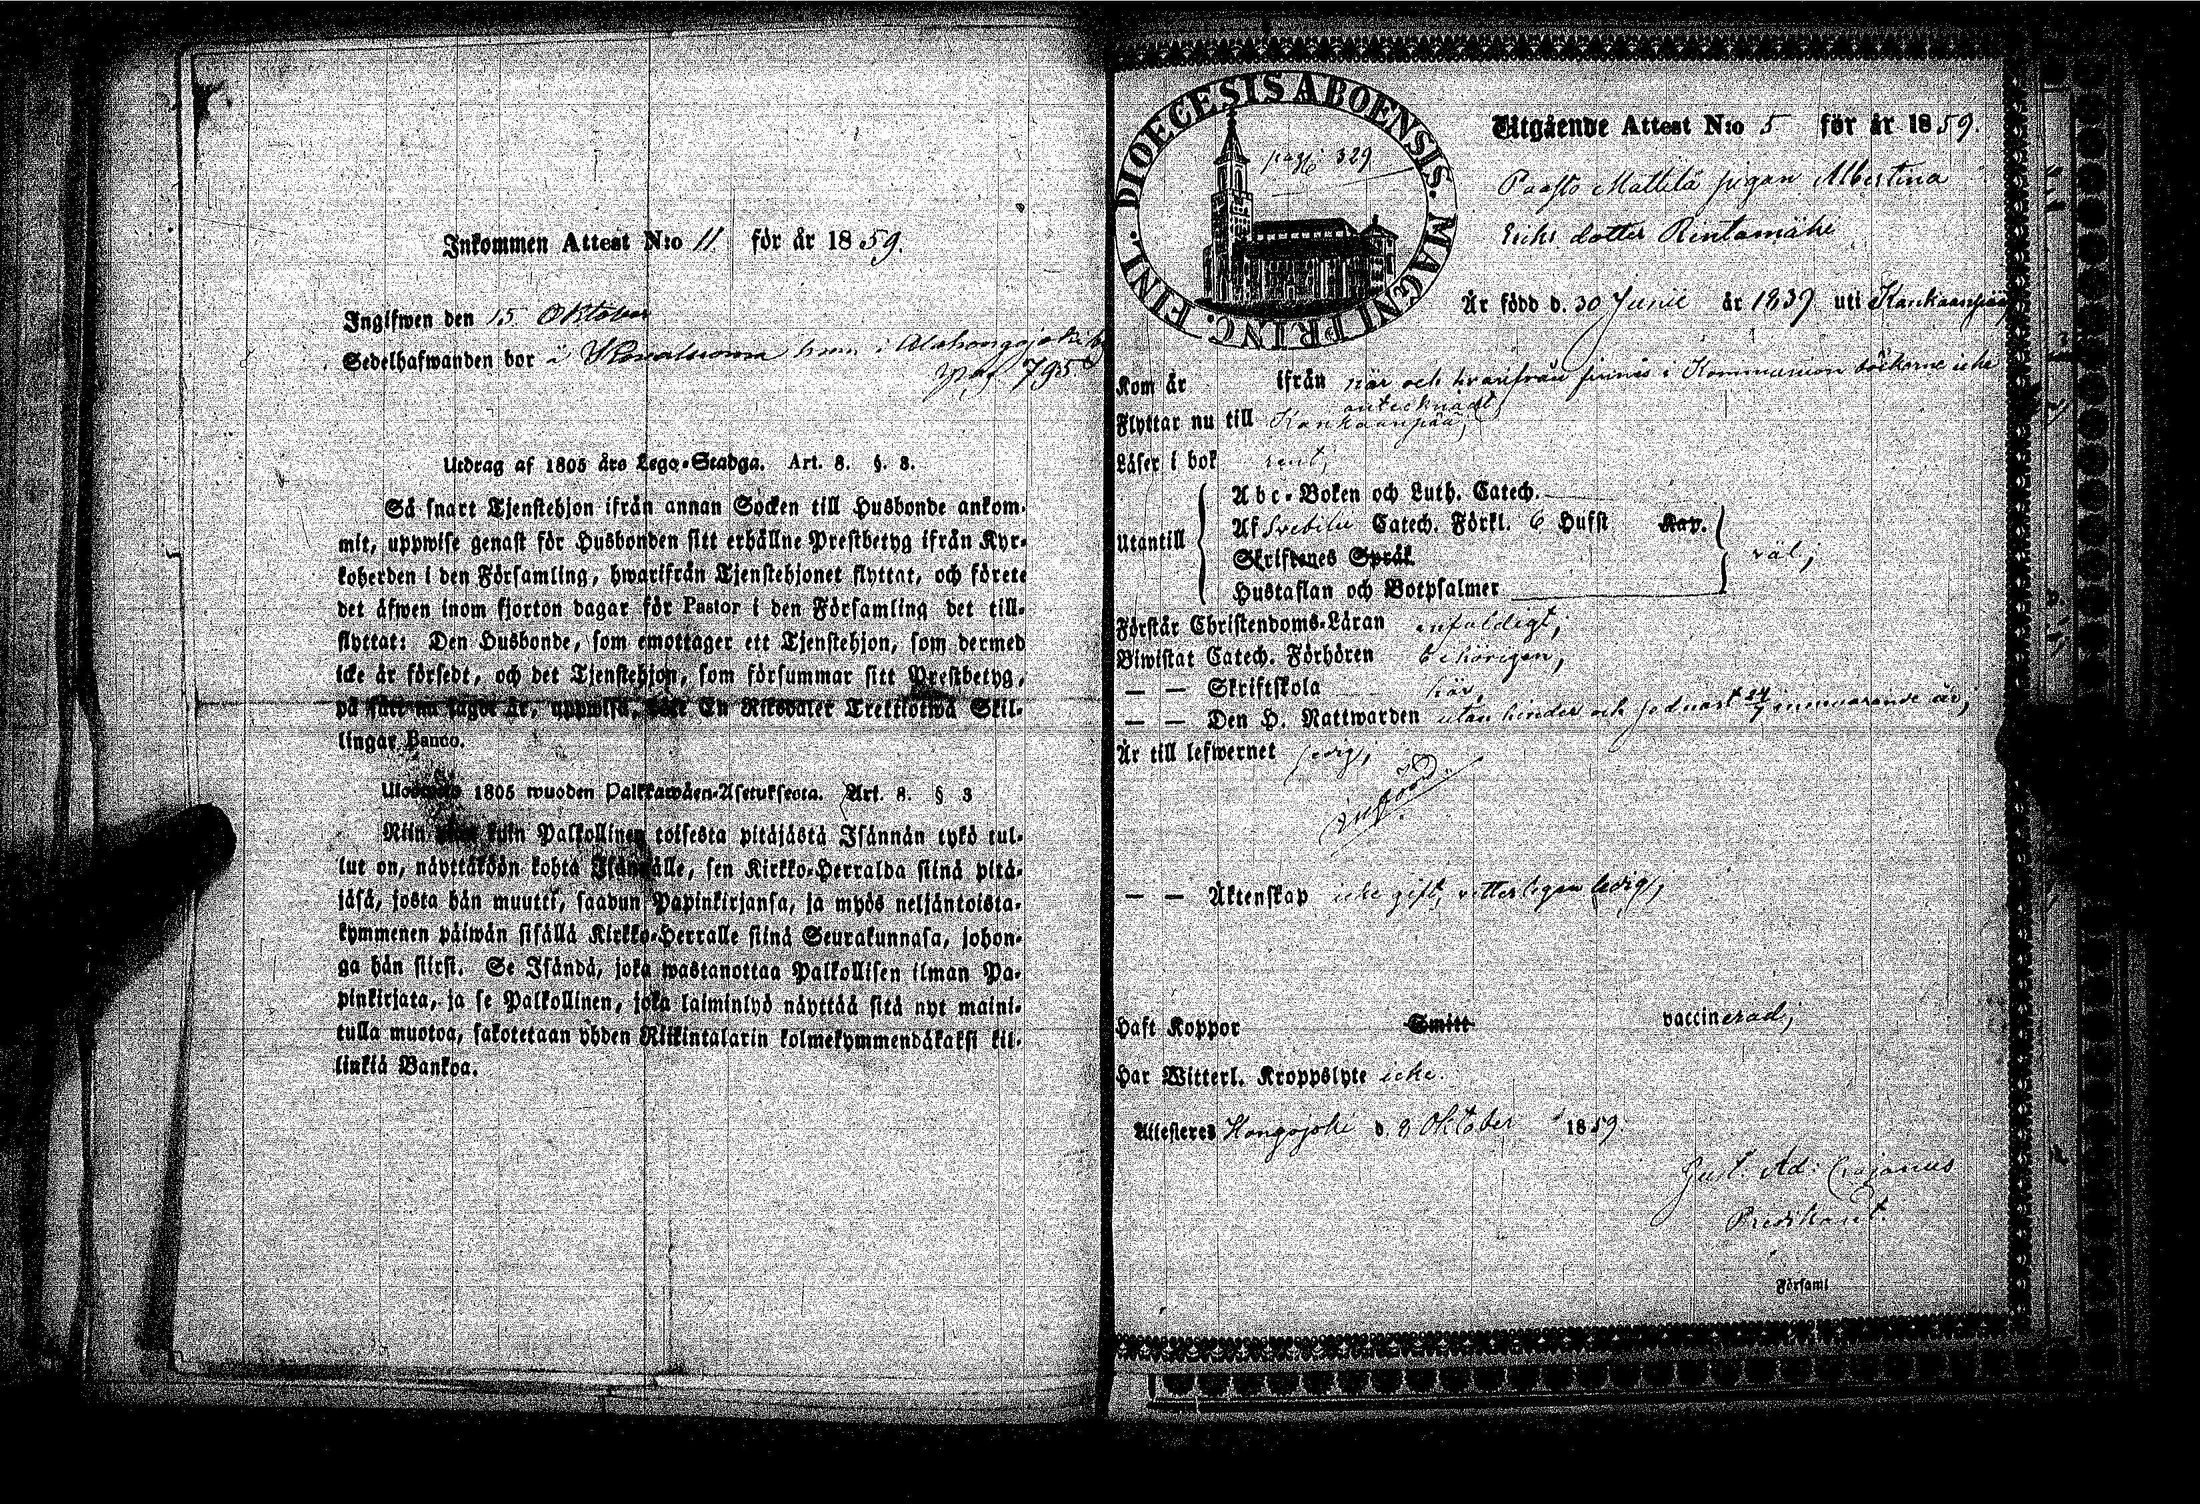 Inkommen Attest N:o 11 för år 1859.
Ingifwen den 15 Oktober
Sedelhafwanden bor å hem i Alahongojoki by
pag. 795
Utdrag af 1805 års Lego-Stadga. Art. 8. §. 8.
Så snart Tjenstehjon ifrån annan Socken till Husbonde ankom-
mit, uppwise genast för Husbonden sitt erhållne Prestbetyg ifrån Kyr-
koherden i den Församling, hwarifrån Tjenstehjonet flyttat, och förete
det äfwen inom fjorton dagar för Pastor i den Församling det till-
flyttat: Den Husbonde, som emottager ett Tjenstehjon, som dermed
icke är försedt, och det Tjenstehjon, som försummar sitt Prestbetyg,
på sätt nu sagdt är, uppwisa, En Riksdaler Trettiotwå Skil-
lingar Banco.
1805 wuoden Palkkawäen-Asetuksesta. Art. 8. § 3
Niin kuin Palkollinen toisesta pitäjästä Isännän tykö tul-
lut on, näyttäköön kohta Isännälle, sen Kirkko-Herralda siinä pitä-
jäsä, josta hän muutti, saadun Papinkirjansa, ja myös neljäntoista-
kymmenen päiwän sisällä Kirkko-Herralle siinä Seurakunnasa, johon-
ga hän siirsi. Se Isändä, joka wastanottaa Palkollisen ilman Pa-
pinkirjata, ja se Palkollinen, joka laiminlyö näyttää sitä nyt maini-
tulla muotoa, sakotetaan yhden Riikintalarin kolmekymmendäkaksi kil-
linkiä Bankoa.
DIOECESIS ABOENSIS. MAGNI PRINC. FINL.
pag: 329
Utgående Attest N:o 5 för år 1859.
Paasto Mattila pigan Albertina
Eriks dotter Rentamäki
Är född d. 30 Junii år 1839 uti Kankaanpää
Kom år ifrån när och hvarifrån finnes i Kommunion böckerne icke
antecknadt;
Flyttar nu till Kankaanpää;
Läser i bok rent;
Utantill
Abc-Boken och Luth. Catech.
Af Svebilii Catech. Förkl. 6 Hufst Kap.
Skriftenes Språk
Hustaflan och Botpsalmer
väl;
Förstår Christendoms-Läran enfaldigt;
Biwistat Catech. Förhören behörigen,
— — Skriftskola här,
— — Den H. Nattwarden utan hinder och sednast 24/7 innevarande år;
Är till lefwernet frejdig;
— — Äktenskap icke gift, vetterligen ledig;
Haft Koppor Smitt vaccinerad;
Har Witterl. Kroppslyte icke.
Attesteres Hongojoki d. 8 Oktober 1859.
Gust. Ad: Cajanus
Predikant.
Församl